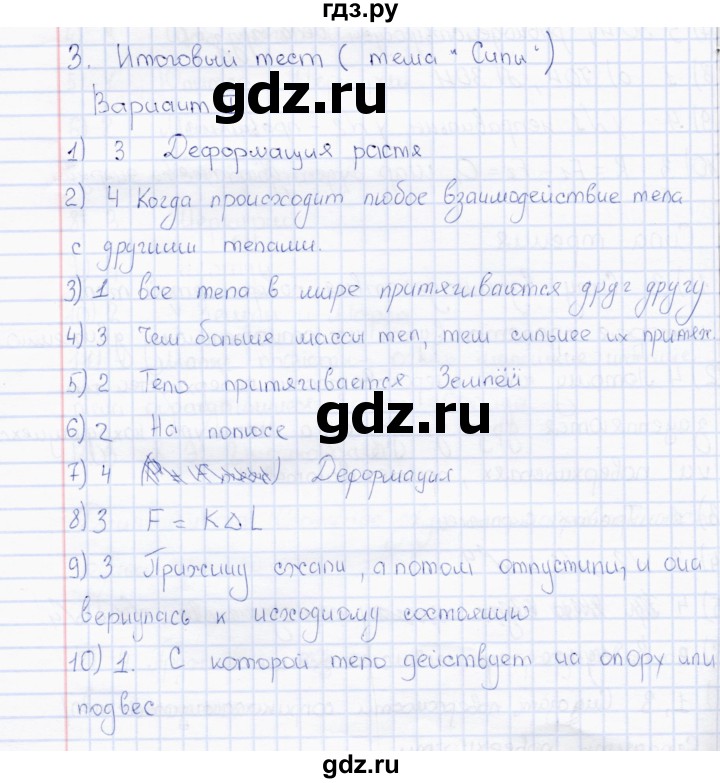 гдз.ру
3. Итоговый тест ( тема " Силы ")
Вариант
1) 3 Деформация растя
2) 4 Когда происходит любое взаимодействие тела
с другими телами.
3) 1. все тела в мире притягиваются друг другу
4) 3 Чем больше массы тел, тем сильнее их притяж.
5) 2 Тело притягивается Землёй
6) 2 На полюсе
7) 4 Деформация
8) 3 F = K△L
9) 3 Пружину сжали, а потом отпустили, и она
вернулась к исходному состоянию
10) 1. С которой тело действует на опору или
подвес
gdz.ru
gdz.ru
gdz.ru
gdz.ru